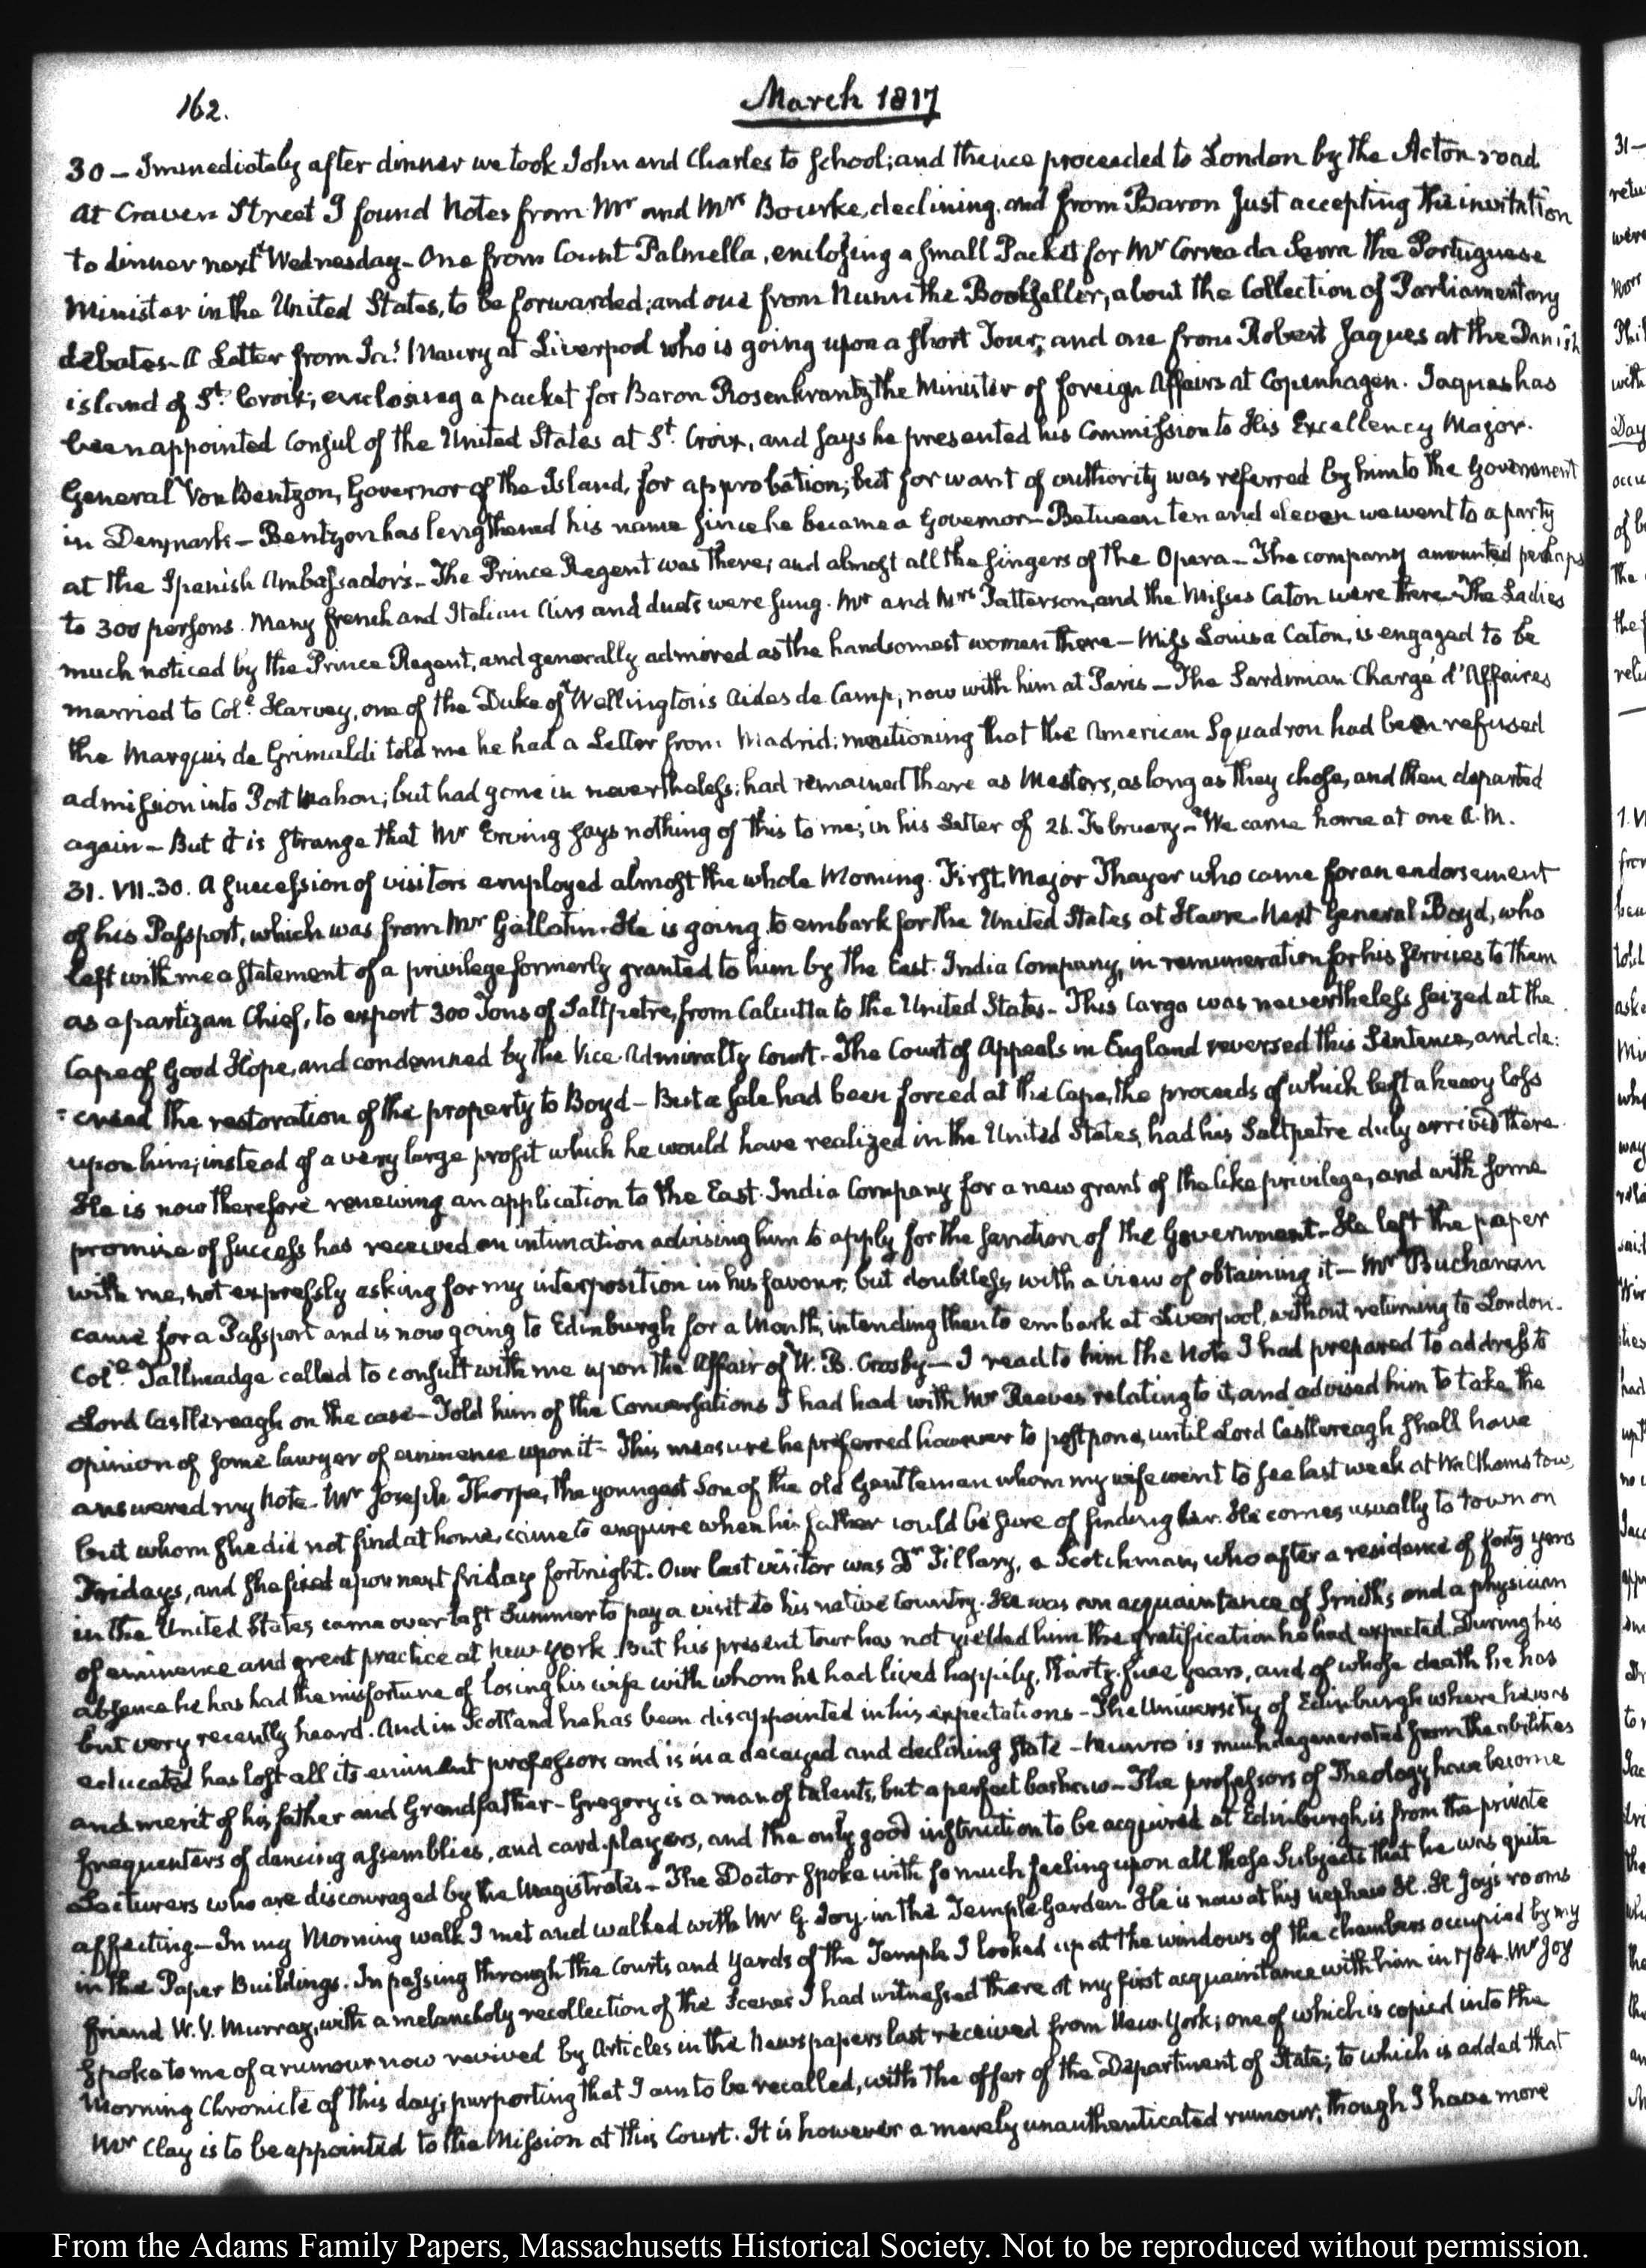 162.
March 1817
30 – Immediately after dinner we took John and Charles to School; and thence proceeded to London by the Acton road
At Craven Street I found Notes from Mr and Mrs Bourke, declining, and from Baron Just accepting the invitation
to dinner next Wednesday – One from Count Palmella, enclosing a small Packet for Mr Correa da Serra the Portuguese
Minister in the United States, to be forwarded; and one from Nunn the Bookseller, about the Collection of Parliamentary
debates – A Letter from Jas Maury at Liverpool who is going upon a short Tour; and one from Robert Jaques at the Danish
island of St. Croix; enclosing a packet for Baron Rosenkrantz the Minister of foreign Affairs at Copenhagen. Jaques has
been appointed Consul of the United States at St. Croix, and says he presented his Commission to His Excellency Major-
General Von Bentzon, Governor of the Island, for approbation; but for want of authority was referred by him to the Government
in Denmark – Bentzon has lengthened his name since he became a Governor – Between ten and eleven we went to a party
at the Spanish Ambassador's – The Prince Regent was there; and almost all the singers of the Opera – The company amounted perhaps
to 300 persons. Many french and Italian airs and duets were sung. Mr and Mrs Patterson, and the Misses Caton were there – The Ladies
much noticed by the Prince Regent, and generally admired as the handsomest women there – Miss Louisa Caton, is engaged to be
married to Coll. Harvey, one of the Duke of Wellington's Aides de Camp, now with him at Paris – The Sardinian Chargé d'Affaires
the Marquis de Grimaldi told me he had a Letter from Madrid; mentioning that the American Squadron had been refused
admission into Port Mahon; but had gone in nevertheless; had remained there as Masters, as long as they chose, and then departed
again – But it is strange that Mr Erving says nothing of this to me; in his Letter of 26. February – We came home at one A.M.
31. VII..30. A succession of visitors employed almost the whole Morning. First, Major Thayer who came for an endorsement
of his Passport, which was from Mr Gallatin. He is going to embark for the United States at Havre. Next General Boyd, who
left with me a statement of a privilege formerly granted to him by the East-India Company, in remuneration for his services to them
as a partizan Chief, to export 300 Tons of Saltpetre, from Calcutta to the United States – This Cargo was nevertheless seized at the
Cape of Good Hope, and condemned by the Vice Admiralty Court – The Court of Appeals in England reversed this Sentence, and de:
:creed the restoration of the property to Boyd – But a sale had been forced at the Cape, the proceeds of which left a heavy loss
upon him; instead of a very large profit which he would have realized in the United States, had his Saltpetre duly arrived there.
He is now therefore renewing an application to the East-India Company for a new grant of the like privilege, and with some
promise of success has received an intimation advising him to apply for the sanction of the Government – He left the paper
with me, not expressly asking for my interposition in his favour, but doubtless, with a view of obtaining it – Mr Buchanan
came for a Passport and is now going to Edinburgh for a Month, intending then to embark at Liverpool, without returning to London.
Coll. Tallmadge called to consult with me upon the Affair of W. B. Crosby – I read to him the Note I had prepared to address to
Lord Castlereagh on the case – Told him of the Conversations I had had with Mr Reeves relating to it, and advised him to take the
opinion of some lawyer of eminence upon it – This measure he preferred however to postpone, until Lord Castlereagh shall have
answered my Note. Mr Joseph Thorpe, the youngest Son of the old Gentleman whom my wife went to see last week at Walthamstow,
but whom she did not find at home, came to enquire when his father could be sure of finding her. He comes usually to town on
Fridays, and she fixed upon next friday fortnight. Our last visitor was Dr Tillary, a Scotchman, who after a residence of forty years
in the United States, came over last Summer to pay a visit to his native Country. He was an acquaintance of Smith's and a physician
of eminence and great practice at New-York. But his present tour has not yielded him the gratification he had expected. During his
absence he has had the misfortune of losing his wife with whom he had lived happily, thirty-five years, and of whose death he has
but very recently heard. And in Scotland he has been disappointed in his expectations – The University of Edinburgh where he was
educated has lost all its eminent professors and is in a decayed and declining state – Munro is much degenerated from the abilities
and merit of his father and Grandfather – Gregory is a man of talents, but a perfect bashaw – The professors of Theology have become
frequenters of dancing assemblies, and card-players, and the only good instruction to be acquired at Edinburgh, is from the private
Lecturers who are discouraged by the Magistrates – The Doctor spoke with so much feeling upon all these Subjects that he was quite
affecting – In my Morning walk I met and walked with Mr G. Joy in the Temple Garden. He is now at his nephew H. H Joy's rooms
in the Paper Buildings. In passing through the Courts and yards of the Temple I looked up at the windows of the chambers occupied by my
friend W. V. Murray, with a melancholy recollection of the Scenes I had witnessed there at my first acquaintance with him in 1784. Mr Joy
spoke to me of a rumour now revived by Articles in the Newspapers last received from New-York; one of which is copied into the
Morning Chronicle of this day; purporting that I am to be recalled, with the offer of the Department of State; to which is added that
Mr Clay is to be appointed to the Mission at this Court. It is however a merely unauthenticated rumour; though I have more
From the Adams Family Papers, Massachusetts Historical Society. Not to be reproduced without permission.